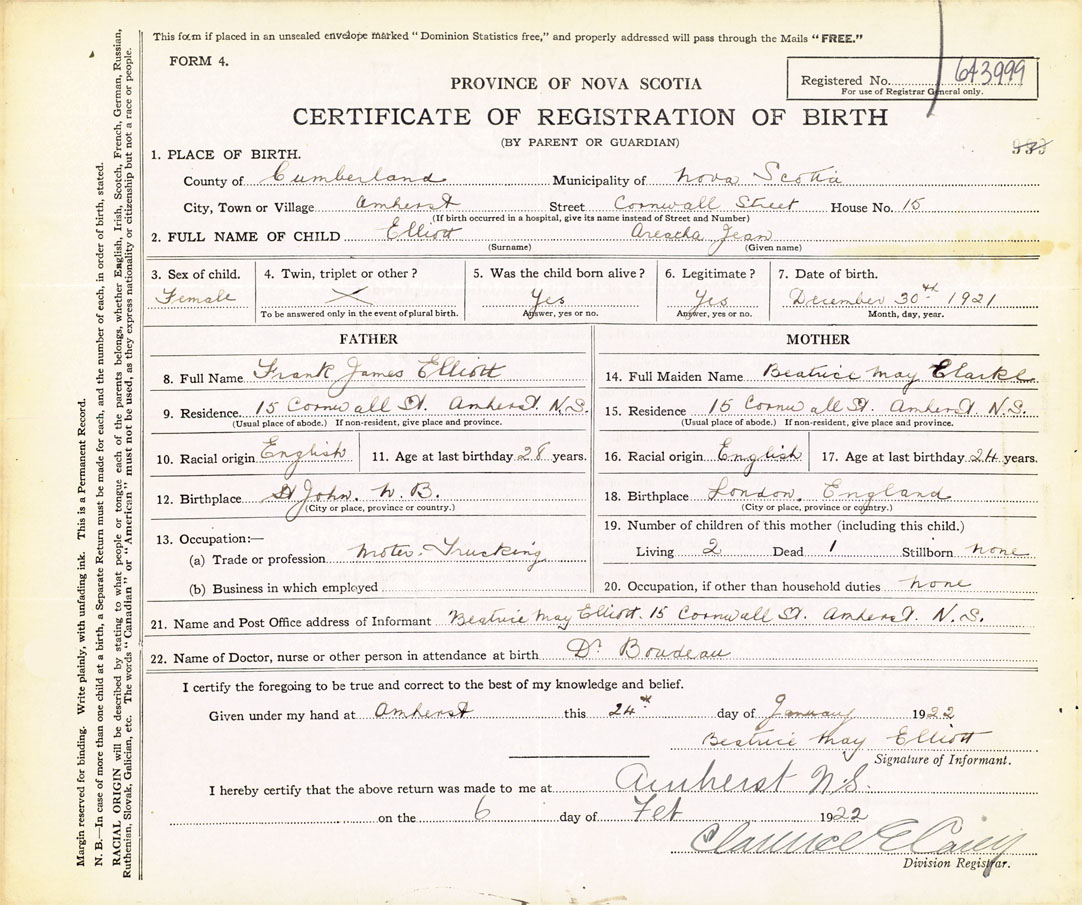 This form if placed in an unsealed envelope marked "Dominion Statistics free," and properly addressed will pass through the Mails "FREE."
FORM 4.
Registered No. 643999
For use of Registrar General only.
PROVINCE OF NOVA SCOTIA
CERTIFICATE OF REGISTRATION OF BIRTH
(BY PARENT OR GUARDIAN)
1. PLACE OF BIRTH.
County of Cumberland Municipality of Nova Scotia
City, Town or Village Amherst Street Cornwall Street House No. 15
(If birth occurred in a hospital, give its name instead of Street and Number)
2. FULL NAME OF CHILD Elliott Areatha Jean
(Surname) (Given name)
3. Sex of child. 4. Twin, triplet or other? 5. Was the child born alive? 6. Legitimate? 7. Date of birth.
Female X Yes Yes December 30th 1921
To be answered only in the event of plural birth. Answer, yes or no. Answer, yes or no. Month, day, year.
FATHER MOTHER
8. Full Name Frank James Elliott 14. Full Maiden Name Beatrice May Clarke
9. Residence 15 Cornwall St. Amherst N.S. 15. Residence 15 Cornwall St. Amherst N.S.
(Usual place of abode.) If non-resident, give place and province. (Usual place of abode.) If non-resident, give place and province.
10. Racial origin English 11. Age at last birthday 28 years. 16. Racial origin English 17. Age at last birthday 24 years.
12. Birthplace St John. N.B. 18. Birthplace London, England
(City or place, province or country.) (City or place, province or country.)
13. Occupation:— 19. Number of children of this mother (including this child.)
(a) Trade or profession Moter-Trucking Living 2 Dead 1 Stillborn none
(b) Business in which employed 20. Occupation, if other than household duties none
21. Name and Post Office address of Informant Beatrice May Elliott. 15 Cornwall St. Amherst. N.S.
22. Name of Doctor, nurse or other person in attendance at birth Dr Boudeau
I certify the foregoing to be true and correct to the best of my knowledge and belief.
Given under my hand at Amherst this 24th day of January 1922
Beatrice May Elliott
Signature of Informant.
I hereby certify that the above return was made to me at Amherst N.S.
on the 6 day of Feb 1922
Clarence E Casey
Division Registrar.
Margin reserved for binding. Write plainly, with unfading ink. This is a Permanent Record.
N. B.—In case of more than one child at a birth, a Separate Return must be made for each, and the number of each, in order of birth, stated.
RACIAL ORIGIN will be described by stating to what people or tongue each of the parents belongs, whether English, Irish, Scotch, French, German, Russian,
Ruthenian, Slovak, Galician, etc. The words "Canadian" or "American" must not be used, as they express nationality or citizenship but not a race or people.